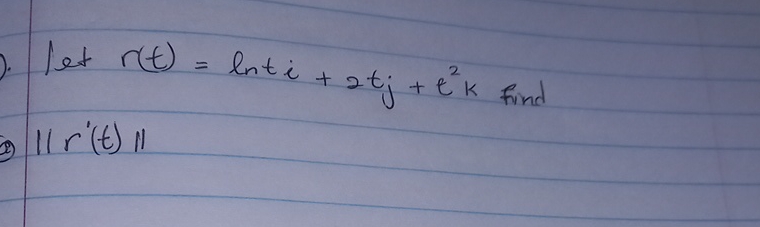 ). let r(t) = lnti + 2tj + t²k find
② ||r'(t)||